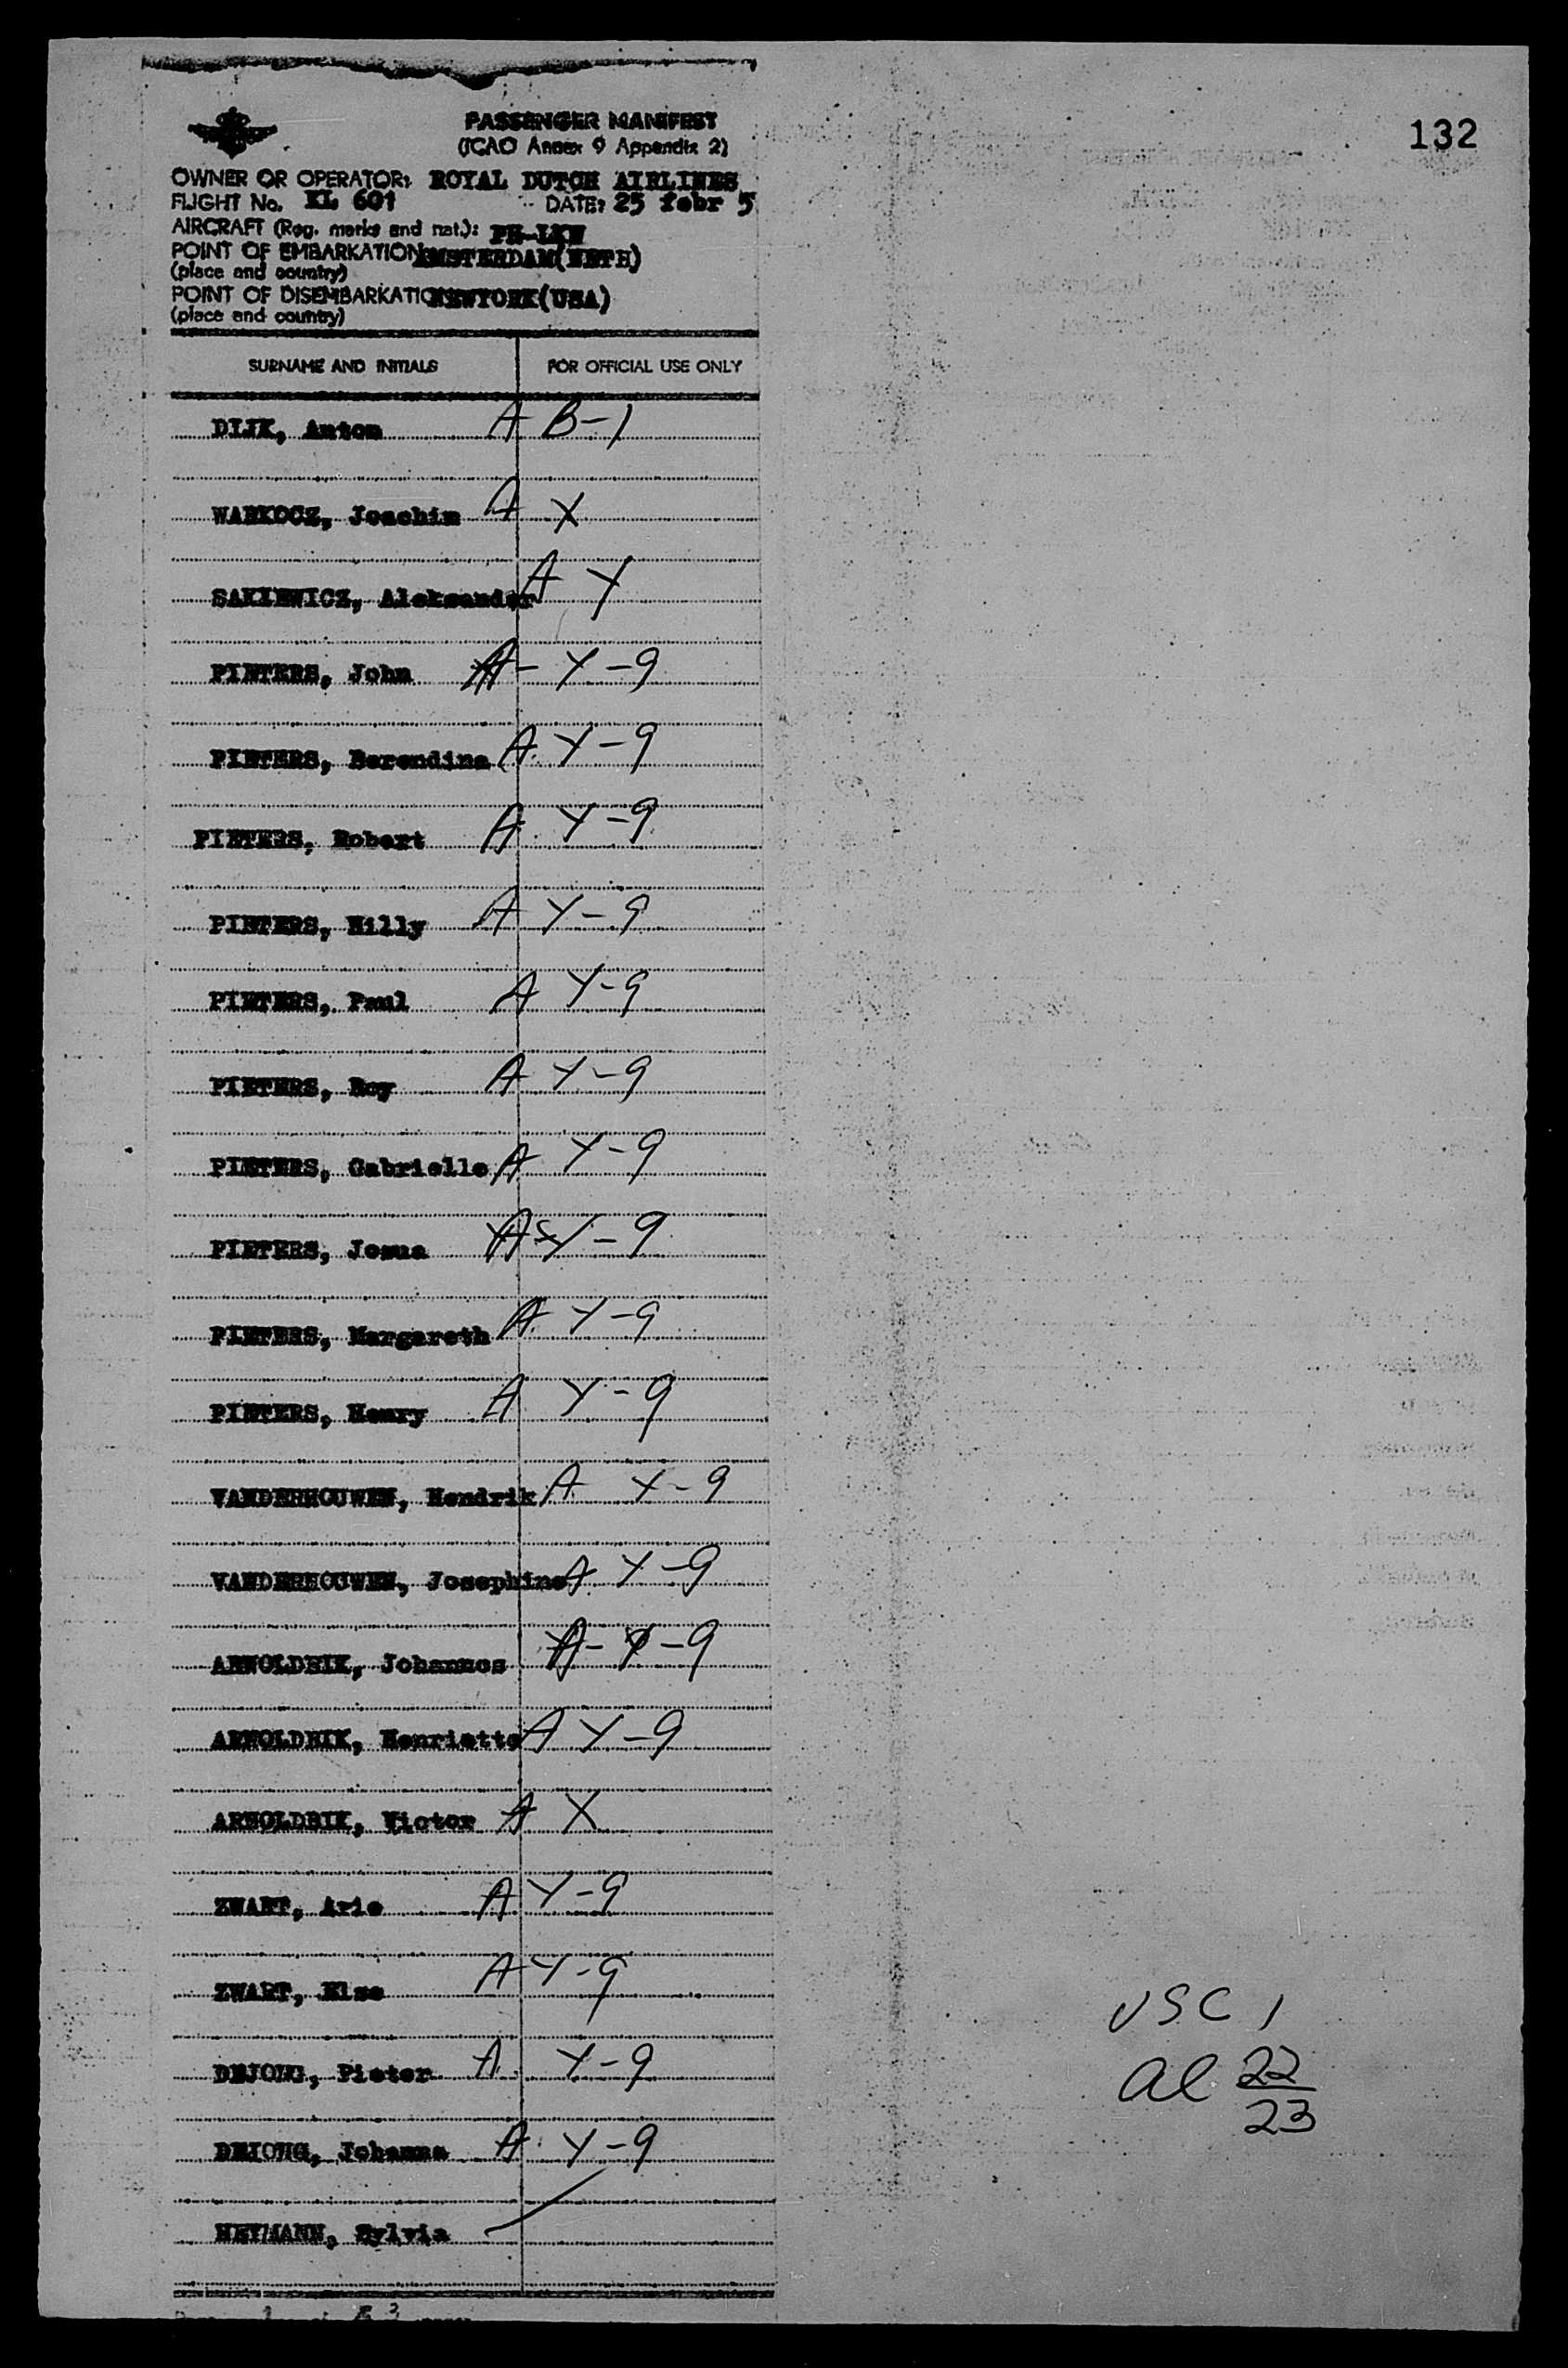 132
PASSENGER MANIFEST
(ICAO Annex 9 Appendix 2)
OWNER OR OPERATOR: ROYAL DUTCH AIRLINES
FLIGHT No. KL 601 DATE: 25 febr 5
AIRCRAFT (Reg. marks and nat.): PH-LKW
POINT OF EMBARKATION AMSTERDAM(NETH)
(place and country)
POINT OF DISEMBARKATIO NEWYORK(USA)
(place and country)
SURNAME AND INITIALS FOR OFFICIAL USE ONLY
DIJK, Anton A B-1
WARKOCZ, Joachim A X
SAKIEWICZ, Aleksander A Y
PIETERS, John A- Y-9
PIETERS, Berendina A Y-9
PIETERS, Robert A Y-9
PIETERS, Willy A Y-9
PIETERS, Paul A Y-9
PIETERS, Roy A Y-9
PIETERS, Gabrielle A Y-9
PIETERS, Josua A Y-9
PIETERS, Margareth A Y-9
PIETERS, Henry A Y-9
VANDERHOUWEN, Hendrik A Y-9
VANDERHOUWEN, Josephine A Y-9
ARNOLDRIK, Johannes A- Y-9
ARNOLDRIK, Henriette A Y-9
ARNOLDRIK, Victor A X
ZWART, Arie A Y-9
ZWART, Else A Y-9
DEJONG, Pieter A Y-9
DEJONG, Johanna A Y-9
HEYMANN, Sylvia
USC 1
al 22
23